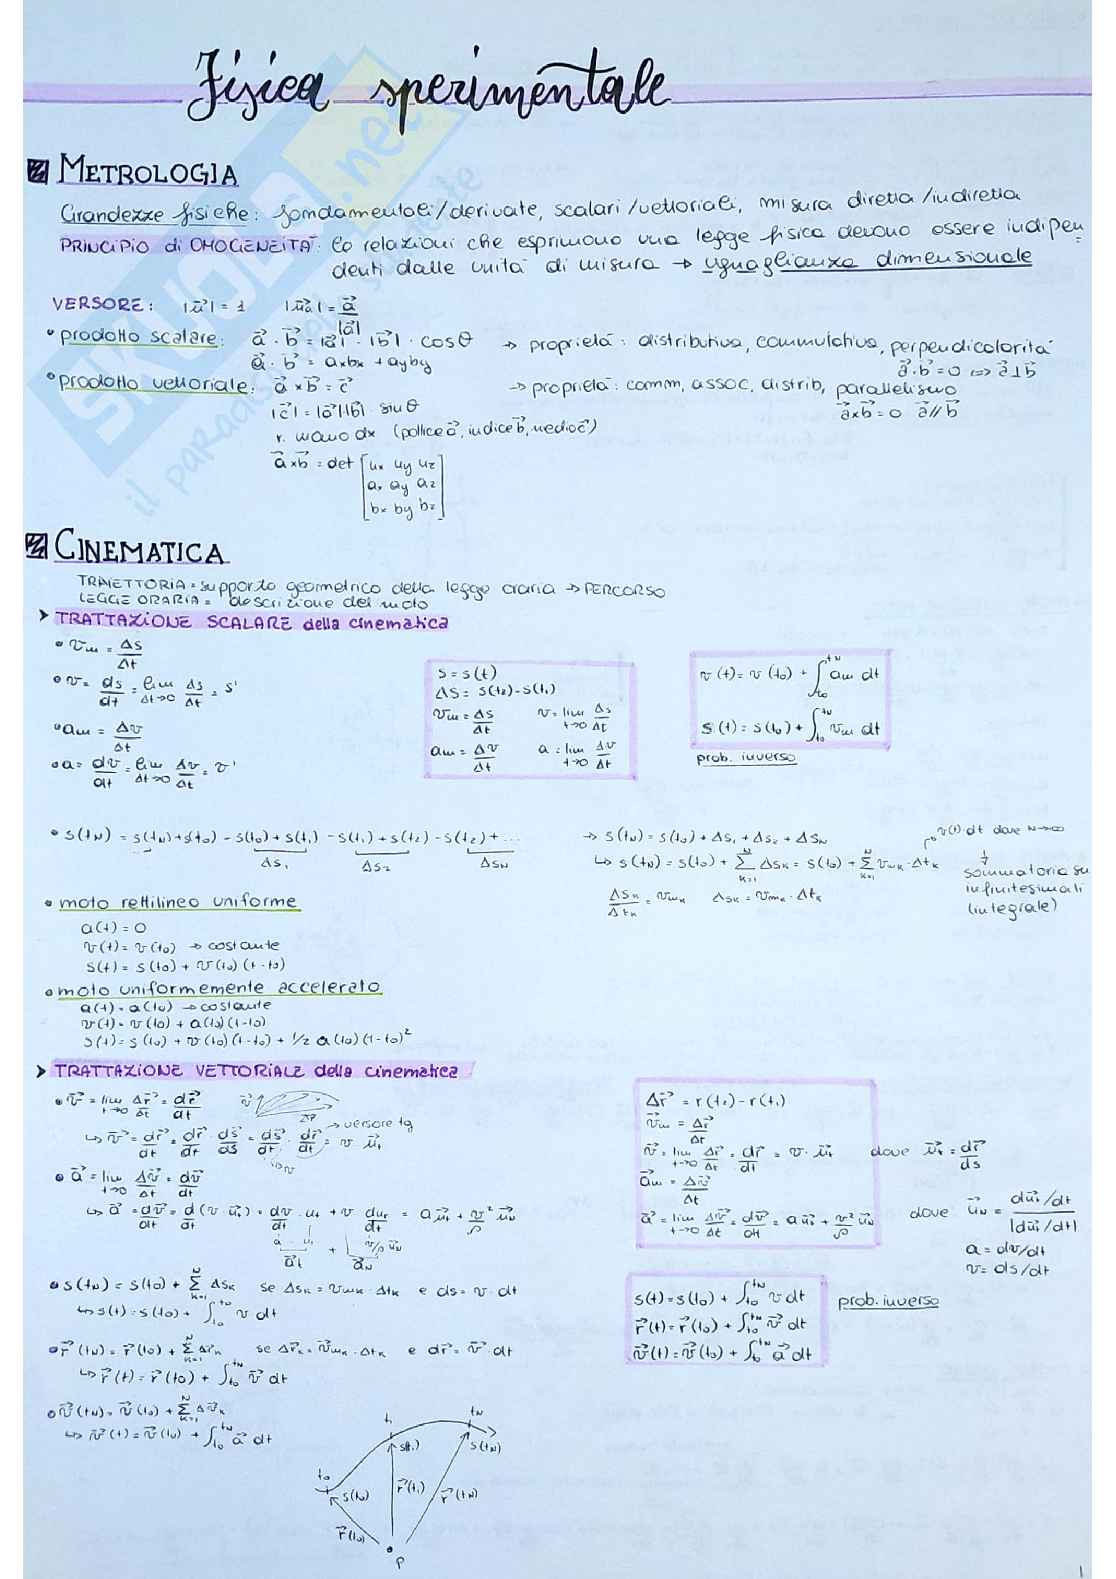 Fisica sperimentale
METROLOGIA
Grandezze fisiche: fondamentali/derivate, scalari/vettoriali, misura diretta/indiretta
PRINCIPIO di OMOGENEITÀ: le relazioni che esprimono una legge fisica devono essere indipen
denti dalle unità di misura → uguaglianza dimensionale
VERSORE: |u⃗| = 1 |u⃗a| = a⃗/|a⃗|
• prodotto scalare: a⃗ · b⃗ = |a⃗| · |b⃗| · cosθ → proprietà: distributiva, commutativa, perpendicolarità
a⃗ · b⃗ = axbx + ayby a⃗·b⃗ = 0 ⟺ a⃗⊥b⃗
• prodotto vettoriale: a⃗ × b⃗ = c⃗ → proprietà: comm, assoc, distrib, parallelismo
|c⃗| = |a⃗||b⃗| · sinθ a⃗×b⃗ = 0 a⃗//b⃗
r. mano dx (pollice a⃗, indice b⃗, medio c⃗)
a⃗×b⃗ = det [ux uy uz
ax ay az
bx by bz]
CINEMATICA
TRAIETTORIA = supporto geometrico della legge oraria → PERCORSO
LEGGE ORARIA = descrizione del moto
➤ TRATTAZIONE SCALARE della cinematica
• vm = Δs/Δt
• v = ds/dt = lim Δt→0 Δs/Δt = s'
• am = Δv/Δt
• a = dv/dt = lim Δt→0 Δv/Δt = v'
s = s(t)
Δs = s(t2) - s(t1)
vm = Δs/Δt v = lim t→0 Δs/Δt
am = Δv/Δt a = lim t→0 Δv/Δt
v(t) = v(t0) + ∫t0^tN am dt
s(t) = s(t0) + ∫t0^tN vm dt
prob. inverso
• s(tN) = s(tN) + s(t0) - s(t0) + s(t1) - s(t1) + s(t2) - s(t2) + ...
Δs1 Δs2 ΔsN
→ s(tN) = s(t0) + Δs1 + Δs2 + ΔsN
v(t)·dt dove N→∞
↳ s(tN) = s(t0) + Σ k=1^N Δsk = s(t0) + Σ k=1^N vmk · Δtk
Δsk/Δtk = vmk Δsk = vmk · Δtk
sommatoria su
infinitesimali
(integrale)
• moto rettilineo uniforme
a(t) = 0
v(t) = v(t0) → costante
s(t) = s(t0) + v(t0)(t-t0)
• moto uniformemente accelerato
a(t) = a(t0) → costante
v(t) = v(t0) + a(t0)(t-t0)
s(t) = s(t0) + v(t0)(t-t0) + 1/2 a(t0)(t-t0)²
➤ TRATTAZIONE VETTORIALE della cinematica
• v⃗ = lim t→0 Δr⃗/Δt = dr⃗/dt
↳ v⃗ = dr⃗/dt = dr⃗/dt · ds⃗/ds = ds⃗/dt · dr⃗/dt = v u⃗t
→ versore tg
• a⃗ = lim t→0 Δv⃗/Δt = dv⃗/dt
↳ a⃗ = dv⃗/dt = d/dt (v · u⃗t) = dv/dt · ut + v dut/dt = a u⃗t + v²/ρ u⃗N
Δr⃗ = r(t2) - r(t1)
v⃗m = Δr⃗/Δt
v⃗ = lim t→0 Δr⃗/Δt = dr⃗/dt = v · u⃗t dove u⃗t = dr⃗/ds
a⃗m = Δv⃗/Δt
a⃗ = lim t→0 Δv⃗/Δt = dv⃗/dt = a u⃗t + v²/ρ u⃗N dove u⃗N = du⃗t/dt / |du⃗t/dt|
a = dv/dt
v = ds/dt
• s(tN) = s(t0) + Σ k=1^N Δsk se Δsk = vmk · Δtk e ds = v · dt
↳ s(t) = s(t0) + ∫t0^tN v dt
• r⃗(tN) = r⃗(t0) + Σ k=1^N Δr⃗k se Δr⃗k = v⃗mk · Δtk e dr⃗ = v⃗ · dt
↳ r⃗(t) = r⃗(t0) + ∫t0^tN v⃗ dt
• v⃗(tN) = v⃗(t0) + Σ k=1^N Δv⃗k
↳ v⃗(t) = v⃗(t0) + ∫t0^tN a⃗ dt
s(t) = s(t0) + ∫t0^tN v dt
r⃗(t) = r⃗(t0) + ∫t0^tN v⃗ dt
v⃗(t) = v⃗(t0) + ∫t0^tN a⃗ dt
prob. inverso
t0 t1 tN
s(t0) s(t1) s(tN)
r⃗(t0) r⃗(t1) r⃗(tN)
P
1